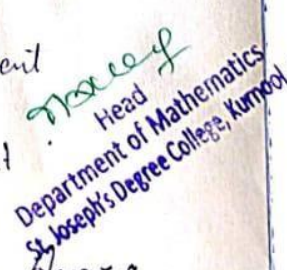 Head
Department of Mathematics
St. Joseph's Degree College, Kurnool